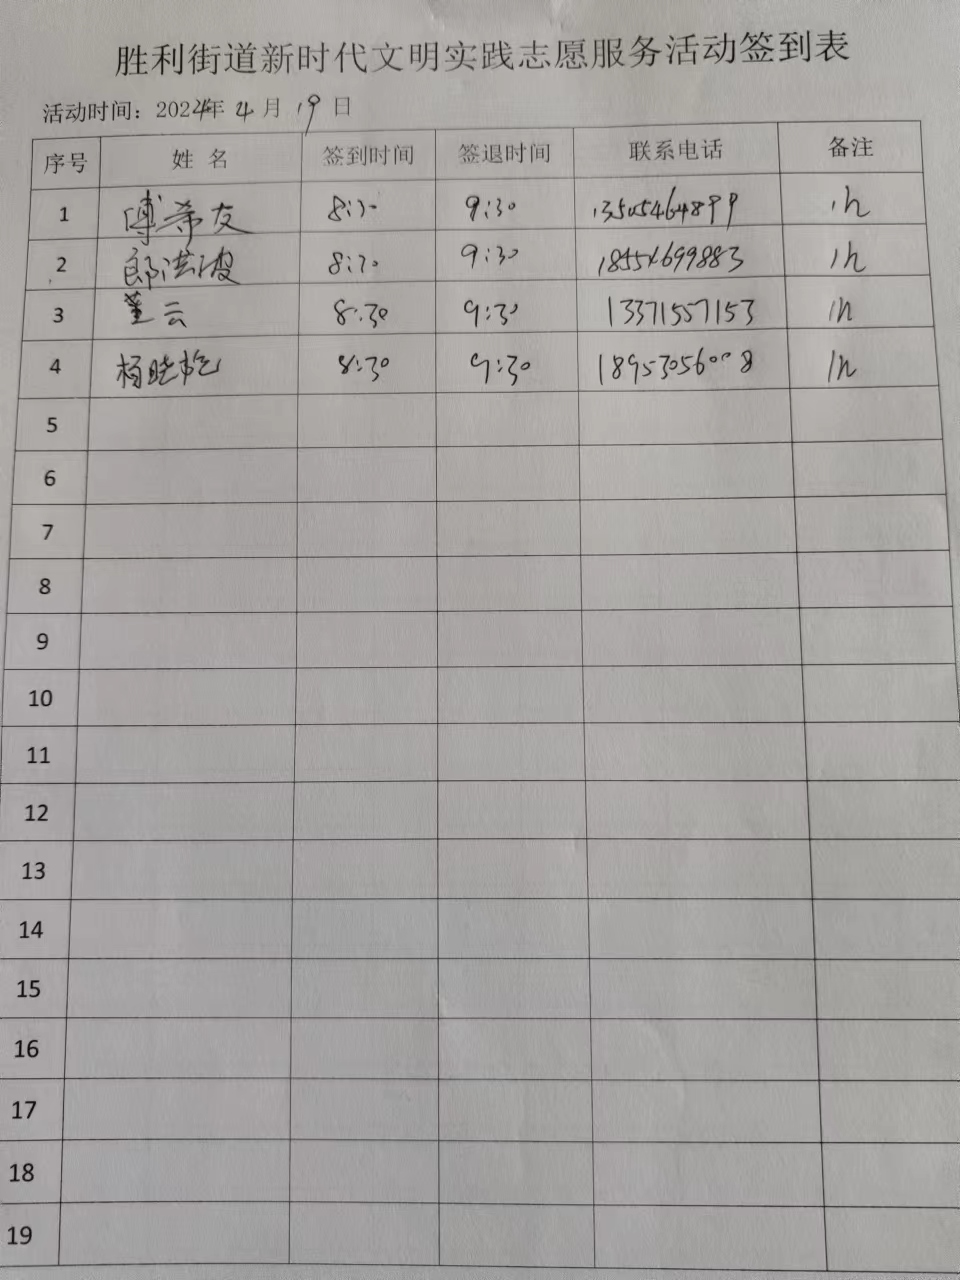 胜利街道新时代文明实践志愿服务活动签到表
活动时间：2024年 4 月 19 日
序号 姓 名 签到时间 签退时间 联系电话 备注
1 傅希友 8:30 9:30 13505464899 1h
2 郎洪波 8:30 9:30 18554699883 1h
3 董云 8:30 9:30 13371557153 1h
4 杨晓 8:30 9:30 18953056008 1h
5
6
7
8
9
10
11
12
13
14
15
16
17
18
19